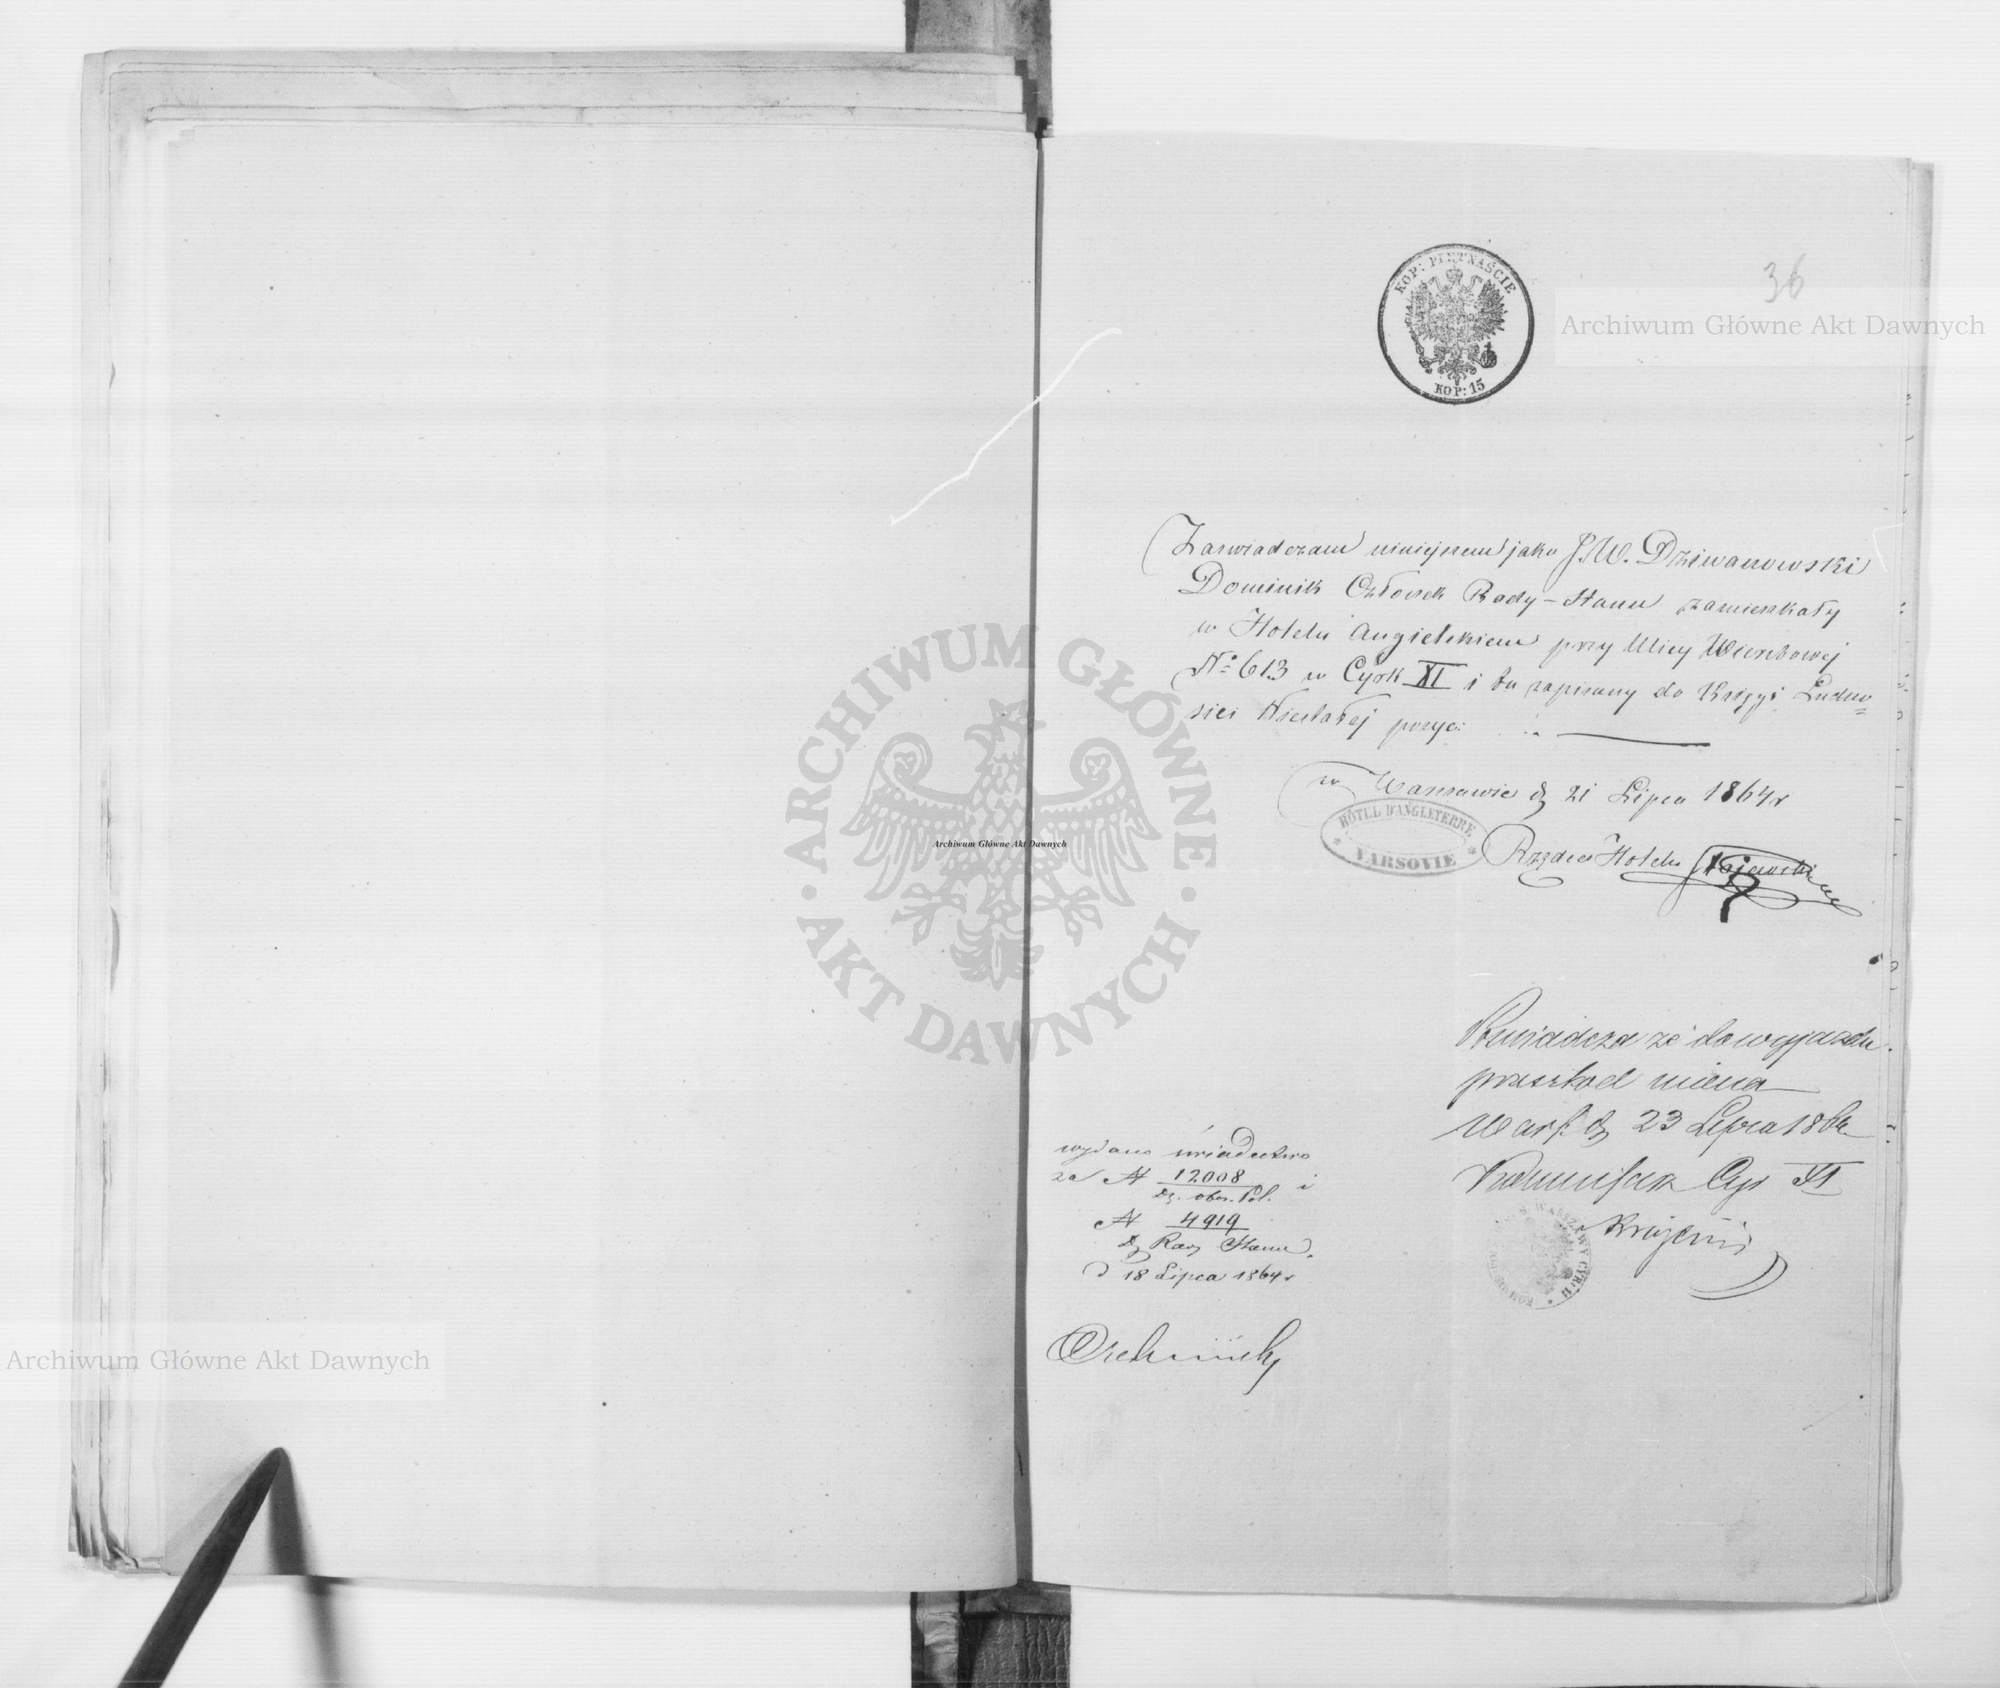 KOP: PIĘTNAŚCIE
KOP: 15
36
Archiwum Główne Akt Dawnych
Zaswiadczam niniejszem jako J.W. Dziwanowski
Dominik Członek Rady-Stanu zamieszkały
w Hotelu Angielskiem przy Ulicy Wierzbowej
№ 613 w Cyrk XI i tu zapisany do Księgi Ludno=
sici Niestałej pozyc:
w Warszawie d 21 Lipca 1864 r
HÔTEL D'ANGLETERRE
VARSOVIE
Rządca Hotelu
ARCHIWUM GŁÓWNE
AKT DAWNYCH
Archiwum Główne Akt Dawnych
Poswiadcza że do wyjazdu
przeszkod niema
Warsz. d 23 Lipca 1864
Kommissarz Cyr XI
wydano świadectwo
za № 12008 i
Dz. ober. Pol.
№ 4919
Dz Rady Stanu
d 18 Lipca 1864 r
Archiwum Główne Akt Dawnych